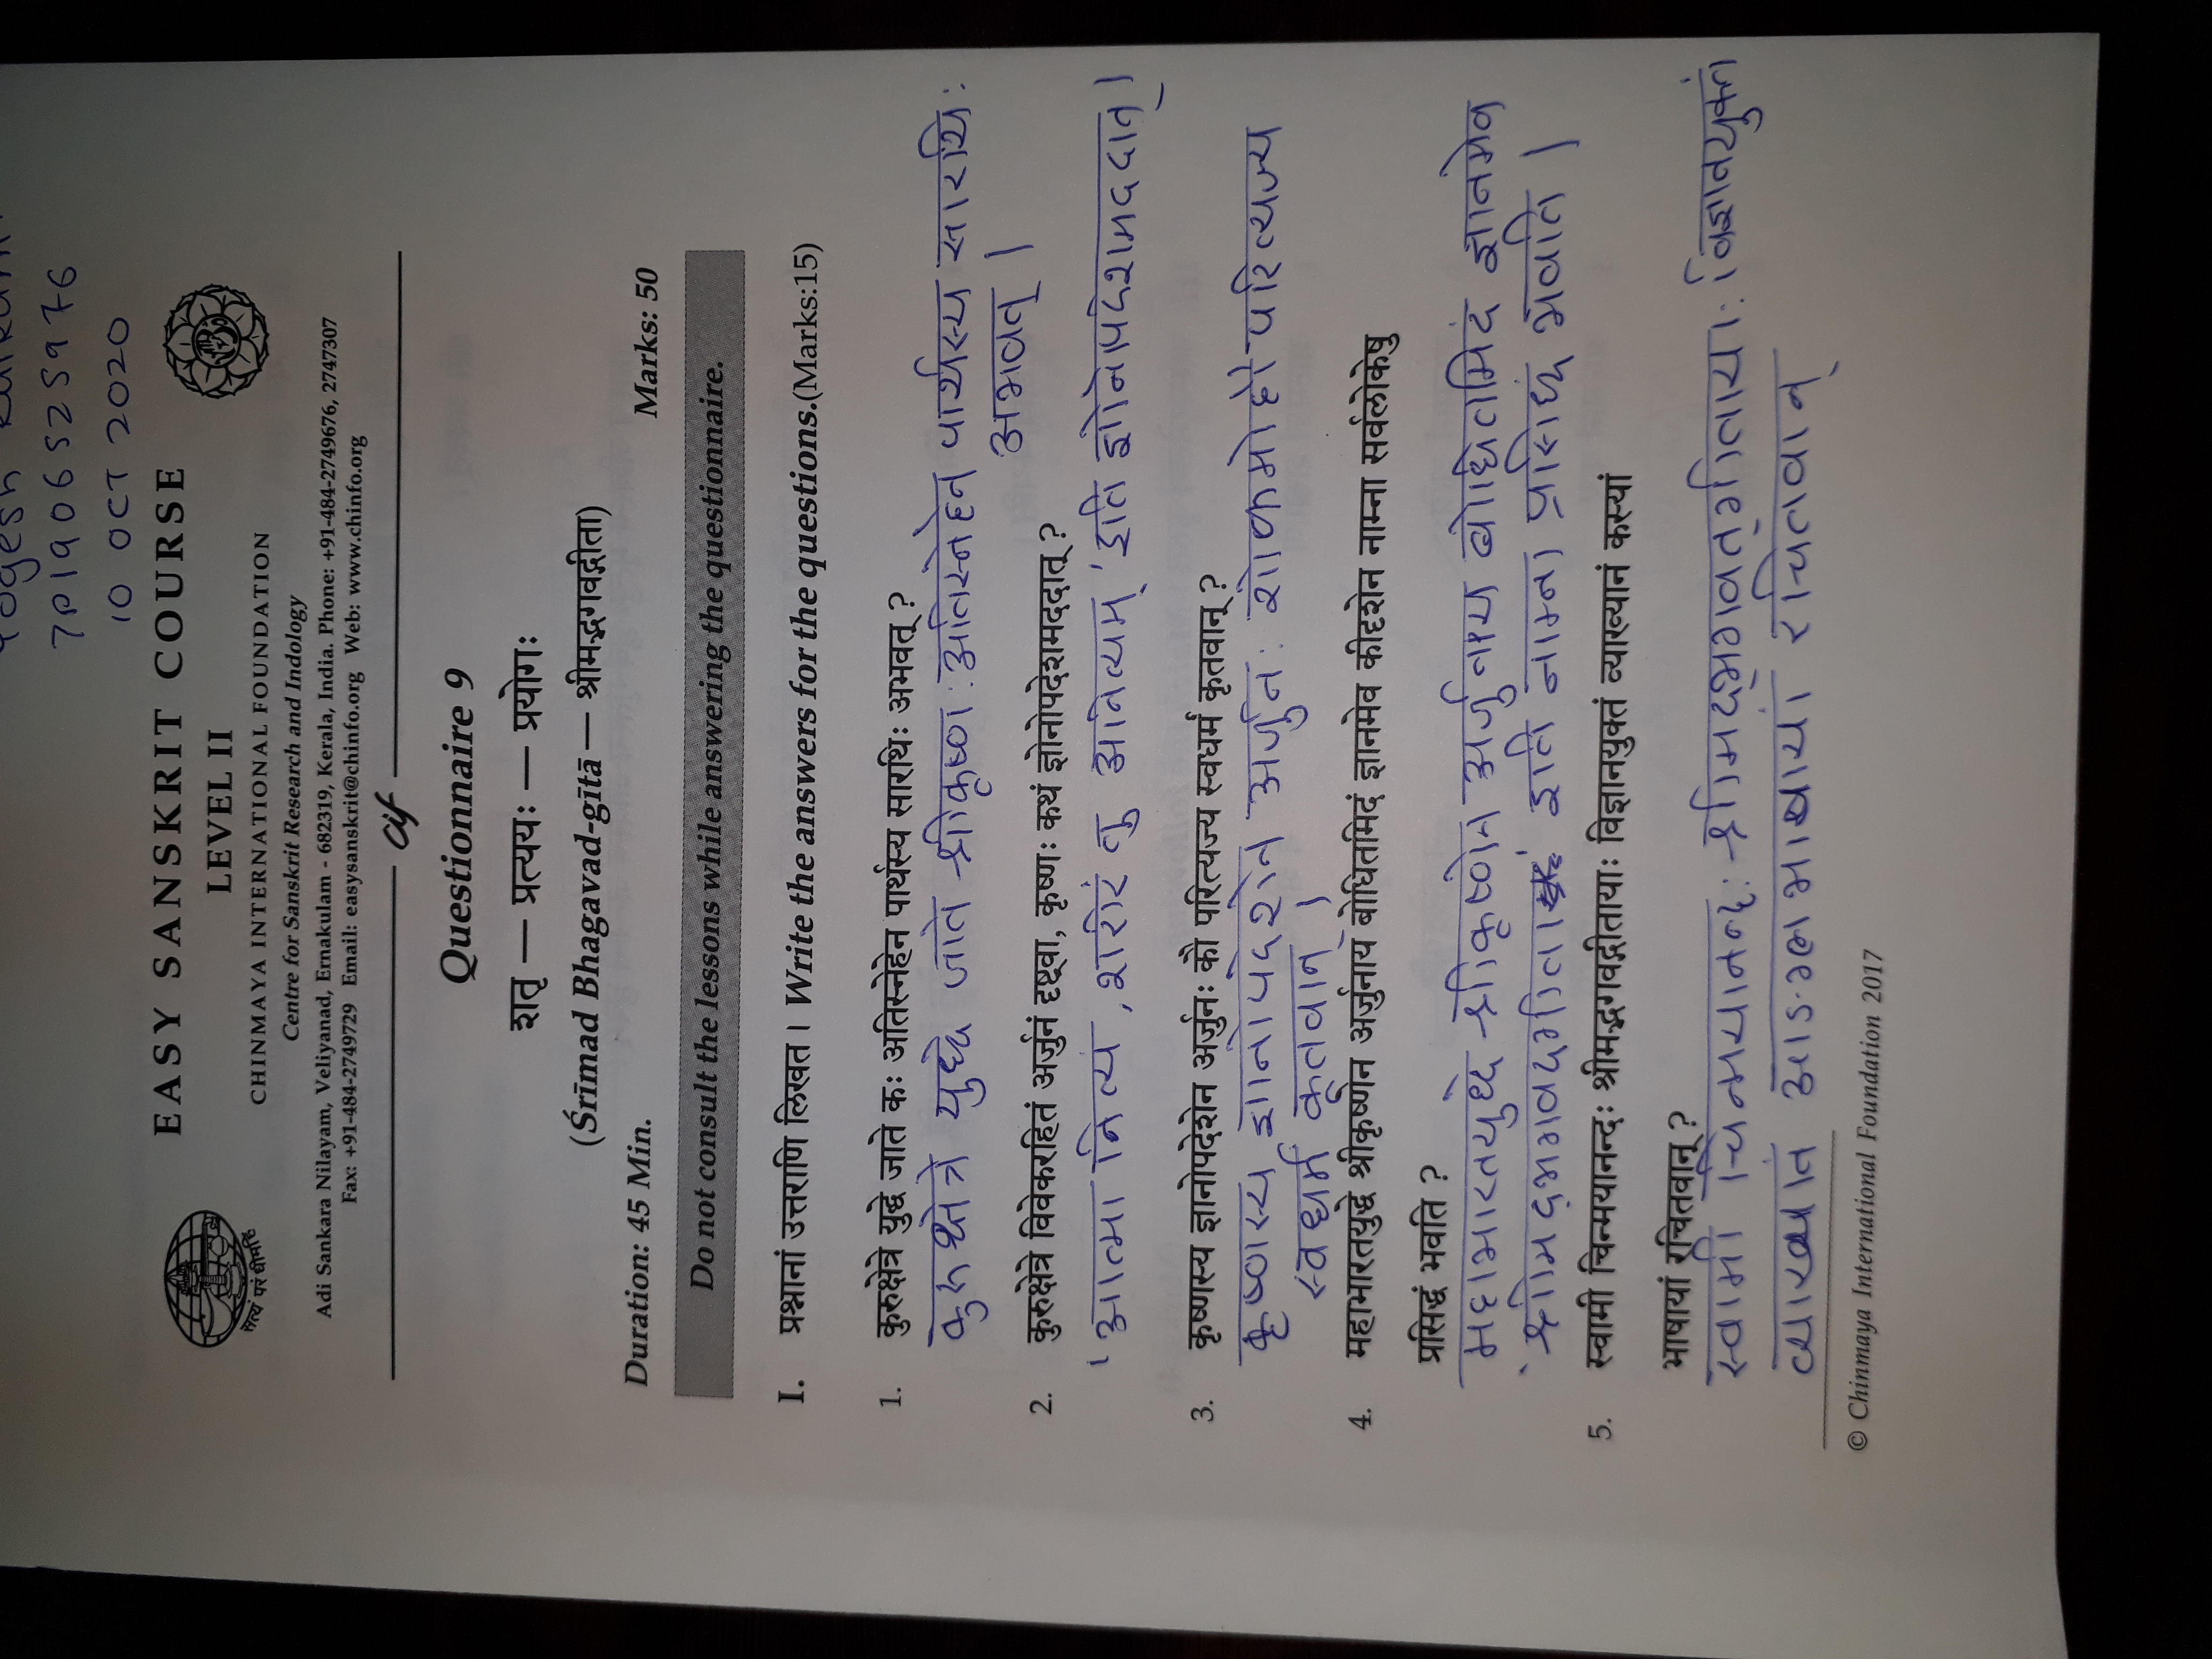 Yogesh
7P1906525976
10 OCT 2020
EASY SANSKRIT COURSE
LEVEL II
CHINMAYA INTERNATIONAL FOUNDATION
Centre for Sanskrit Research and Indology
Adi Sankara Nilayam, Veliyanad, Ernakulam - 682319, Kerala, India. Phone: +91-484-2749676, 2747307
Fax: +91-484-2749729 Email: easysanskrit@chinfo.org Web: www.chinfo.org
सत्यं परं धीमहि
cif
Questionnaire 9
शतृ — प्रत्ययः — प्रयोगः
(Śrīmad Bhagavad-gītā — श्रीमद्भगवद्गीता)
Duration: 45 Min. Marks: 50
Do not consult the lessons while answering the questionnaire.
I. प्रश्नानां उत्तराणि लिखत । Write the answers for the questions.(Marks:15)
1. कुरुक्षेत्रे युद्धे जाते कः अतिस्नेहेन पार्थस्य सारथिः अभवत् ?
कुरुक्षेत्रे युध्दे जाते श्रीकृष्णः अतिस्नेहेन पार्थस्य सारथिः
अभवत् ।
2. कुरुक्षेत्रे विवेकरहितं अर्जुनं दृष्ट्वा, कृष्णः कथं ज्ञोनोपदेशमददात् ?
'आत्मा नित्यं, शरीरं तु अनित्यम्' इति ज्ञोनोपदेशमददात् ।
3. कृष्णस्य ज्ञानोपदेशेन अर्जुनः कौ परित्यज्य स्वधर्मं कृतवान् ?
कृष्णस्य ज्ञानोपदेशेन अर्जुनः शोकमोहौ परित्यज्य
स्वधर्मं कृतवान् ।
4. महाभारतयुद्धे श्रीकृष्णेन अर्जुनाय बोधितमिदं ज्ञानमेव कीदृशेन नाम्ना सर्वलोकेषु
प्रसिद्धं भवति ?
महाभारतयुध्दे श्रीकृष्णेन अर्जुनाय बोधितमिदं ज्ञानमेव
'श्रीमद्भगवदगीता' इति नाम्ना प्रसिध्दं भवति ।
5. स्वामी चिन्मयानन्दः श्रीमद्भगवद्गीतायाः विज्ञानयुक्तं व्याख्यानं कस्यां
भाषायां रचितवान् ?
स्वामी चिन्मयानन्दः श्रीमद्भगवत्गीतायाः विज्ञानयुक्तं
व्याख्यानं आङ्ग्लभाषायां रचितवान्
© Chinmaya International Foundation 2017